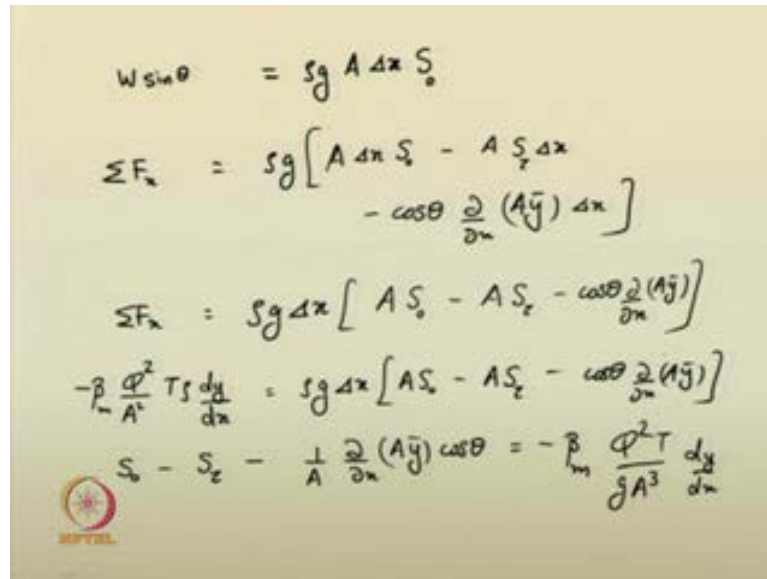 W sinθ = ρg A Δx S₀
ΣFₓ = ρg[A Δx S₀ - A S_τ Δx
- cosθ ∂/∂x (Aȳ) Δx]
ΣFₓ = ρg Δx [AS₀ - AS_τ - cosθ ∂/∂x (Aȳ)]
-βₘ Q²/A² Tρ dy/dx = ρg Δx [AS₀ - AS_τ - cosθ ∂/∂x (Aȳ)]
S₀ - S_τ - 1/A ∂/∂x (Aȳ) cosθ = -βₘ Q²T/gA³ dy/dx
NPTEL